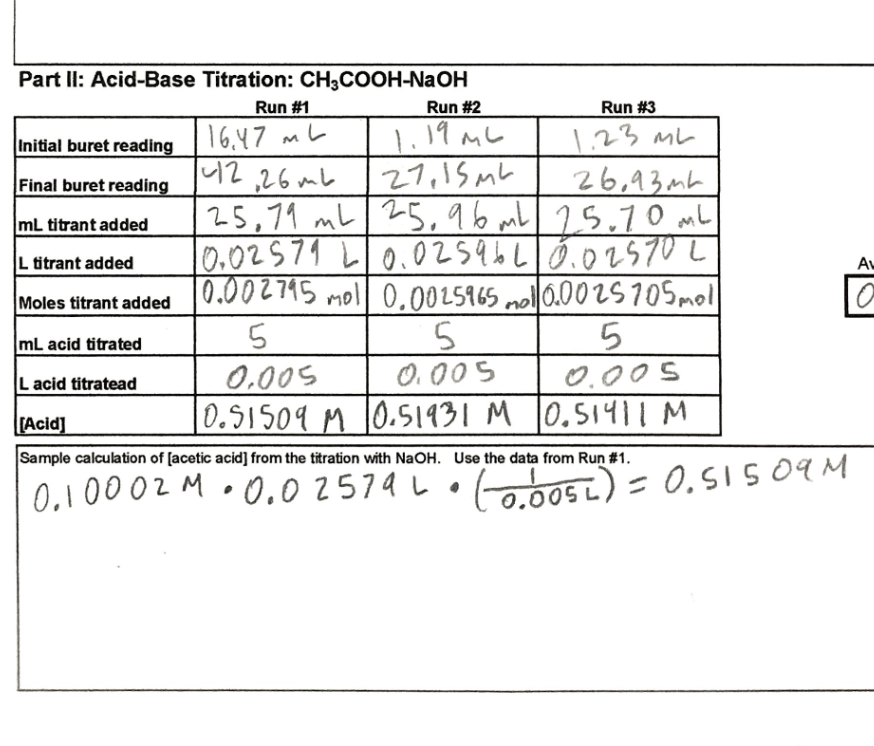 Part II: Acid-Base Titration: CH₃COOH-NaOH
Run #1 Run #2 Run #3
Initial buret reading 16.47 mL 1.19 mL 1.23 mL
Final buret reading 42.26 mL 27.15 mL 26.93 mL
mL titrant added 25.79 mL 25.96 mL 25.70 mL
L titrant added 0.02579 L 0.02596 L 0.02570 L
Moles titrant added 0.002795 mol 0.0025965 mol 0.0025705 mol
mL acid titrated 5 5 5
L acid titratead 0.005 0.005 0.005
[Acid] 0.51509 M 0.51931 M 0.51411 M
Av
0
Sample calculation of [acetic acid] from the titration with NaOH. Use the data from Run #1.
0.10002 M • 0.02579 L • (1/0.005 L) = 0.51509 M